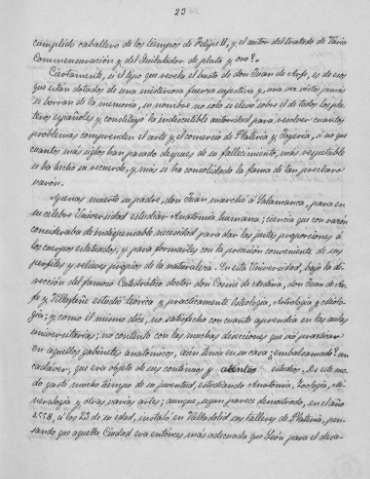 23
cumplido caballero de los tiempos de Felipe II, y el autor del tratado de Varia
Commensuración y del Quilatador de plata y oro?.
Ciertamente, si el tipo que revela el busto de don Juan de Arfe, es de esos
que están dotados de una misteriosa fuerza sugestiva y una vez vistos jamás
se borran de la memoria, su nombre no solo se eleva sobre el de todos los pla-
teros españoles y constituye la indiscutible autoridad para resolver cuantos
problemas comprenden el arte y el comercio de Platería y Joyería, si no que
cuantos más siglos han pasado después de su fallecimiento, más respetable
se ha hecho su recuerdo, y más se ha consolidado la fama de tan preclaro
varón.
Apenas muerto su padre, don Juan marchó a Salamanca, para en
su célebre Universidad estudiar Anatomía humana; ciencia que con razón
consideraba de indispensable necesidad para dar las justas proporciones á
los cuerpos y para formarles con la posición conveniente de sus
perfiles y relieves propios de la naturaleza. En esta Universidad, bajo la di-
rección del famoso Catedrático doctor don Cosme de Medina, don Juan de Ar-
fe y Villafañe estudió teórica y prácticamente Osteología, Astrología y Miolo-
gía; y como él mismo dice, no satisfecho con cuanto aprendía en las aulas
universitarias; no contento con las muchas disecciones que vió practicar
en aquellos gabinetes anatómicos, aún tenía en su casa, embalsamado un
cadáver, que era objeto de sus continuos y atentos estudios. De este mo-
do gastó mucho tiempo de su juventud, estudiando Anatomía, Zoología, Mi-
neralogía y otras varias artes; aunque, según parece demostrado, en el año
1558, á los 23 de su edad, instaló en Valladolid sus talleres de Platería, pen-
sando que aquella Ciudad era entonces más adecuada que León para el desa-